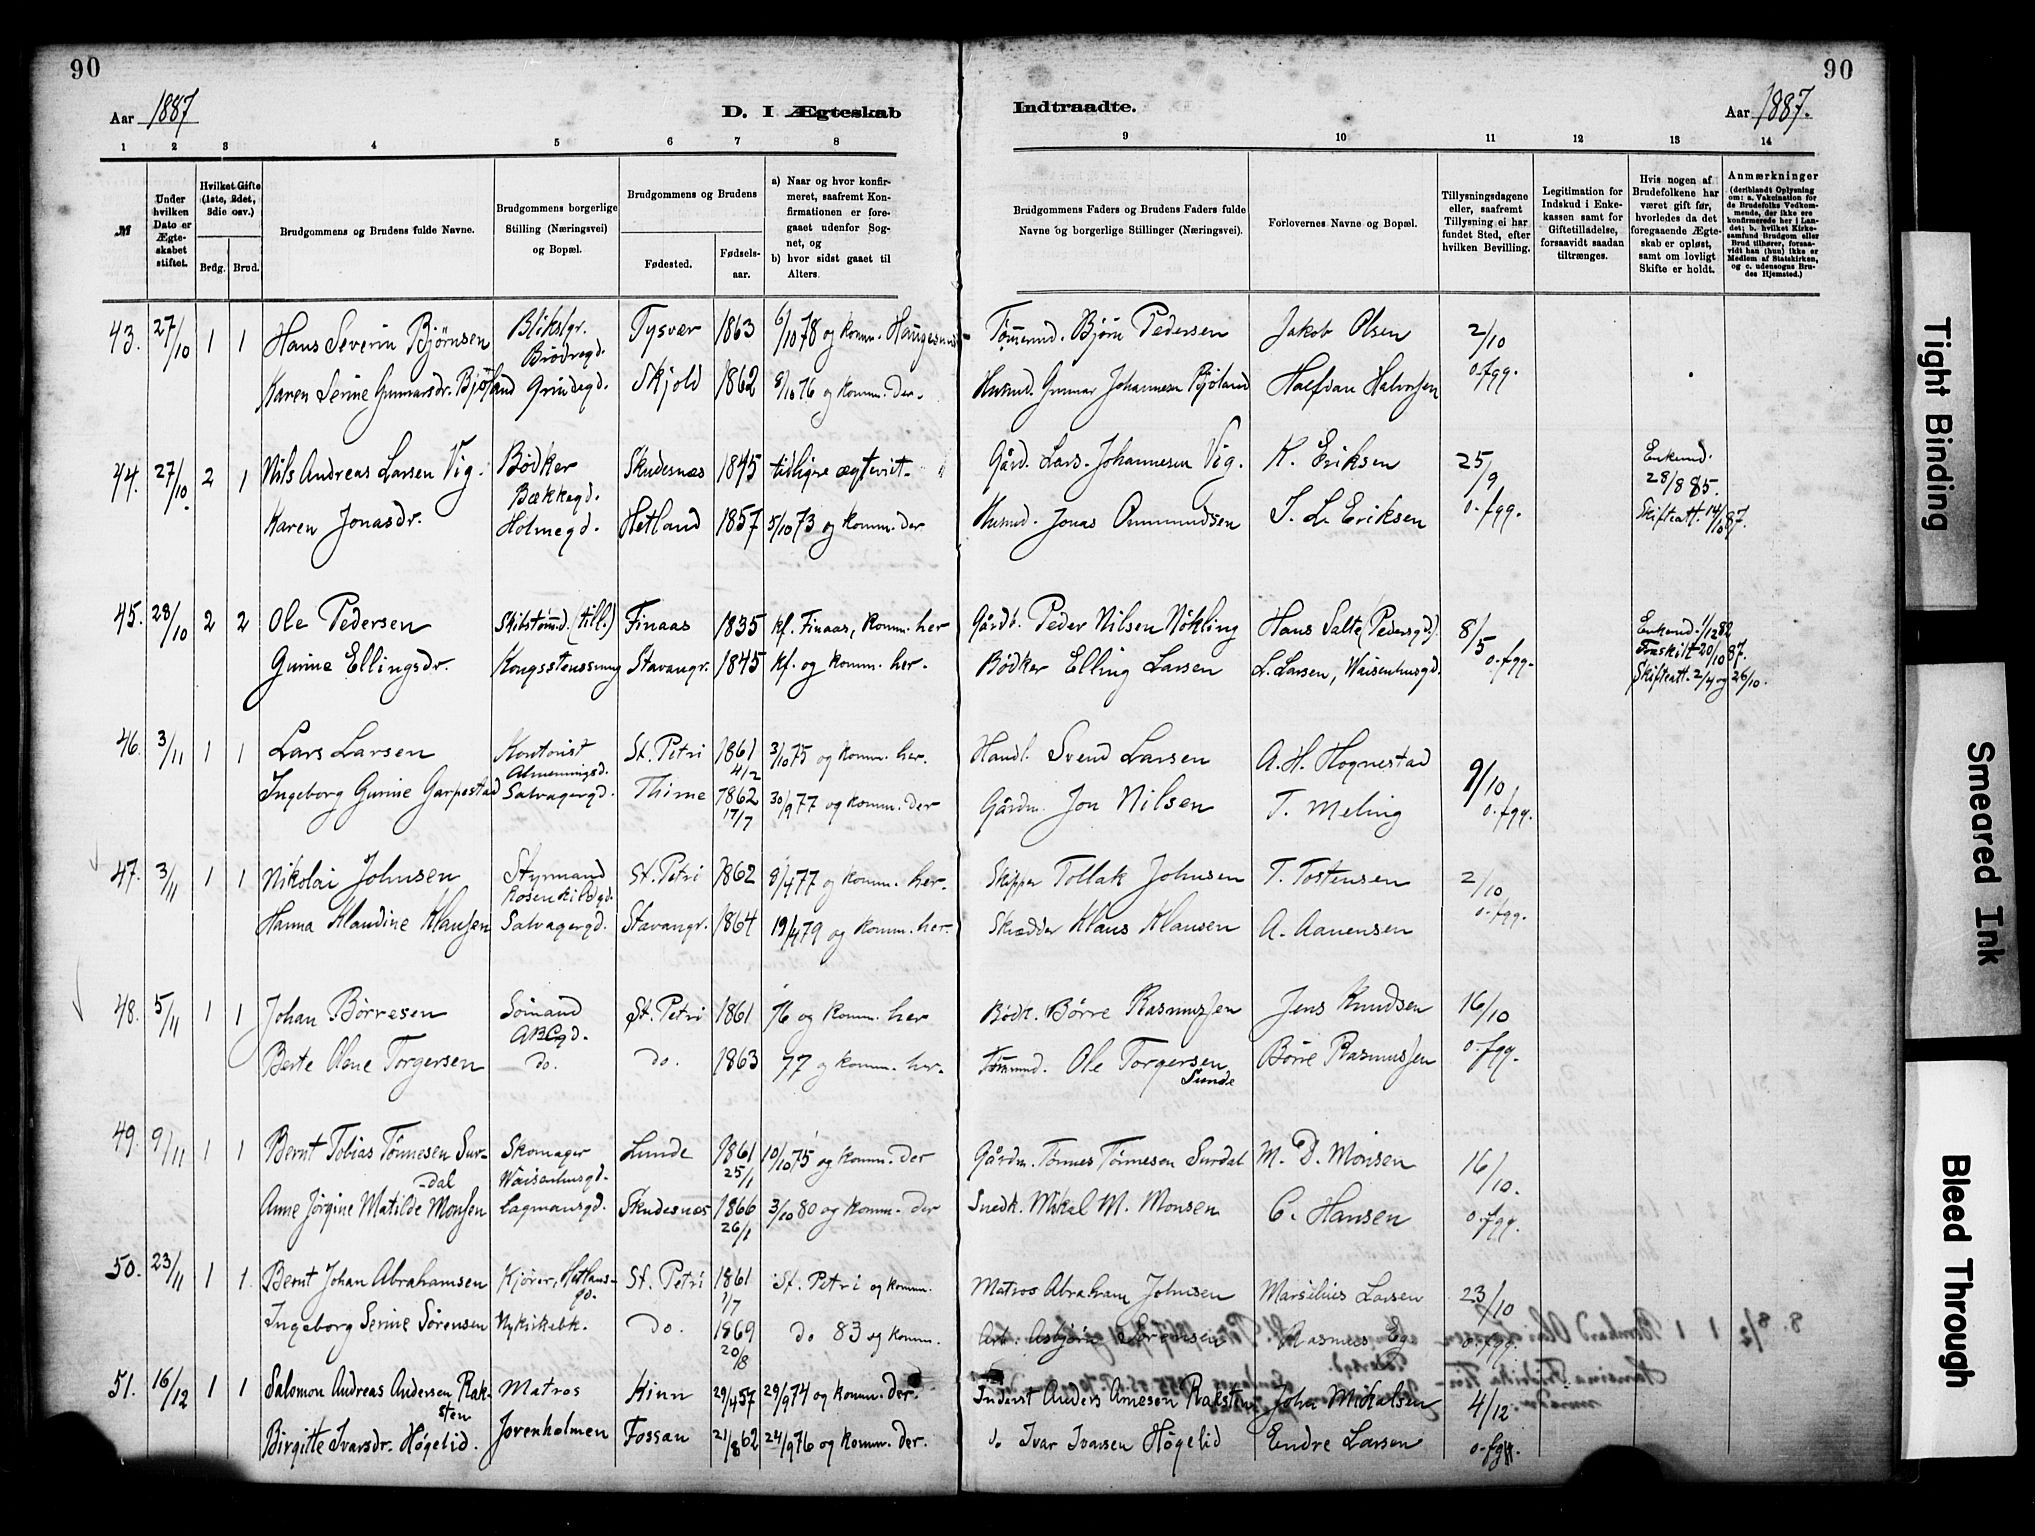 90
90
Aar 1887
D. I Ægteskab
Indtraadte.
Aar 1887.
1 2 3 4 5 6 7 8 9 10 11 12 13 14
№
Under hvilken Dato er Ægteskabet stiftet.
Hvilket Gifte (1ste, 2det, 3die osv.)
Brdg. Brud.
Brudgommens og Brudens fulde Navne.
Brudgommens borgerlige Stilling (Næringsvei) og Bopæl.
Brudgommens og Brudens
Fødested.
Fødselsaar.
a) Naar og hvor konfirmeret, saafremt Konfirmationen er foregaaet udenfor Sognet, og
b) hvor sidst gaaet til Alters.
Brudgommens Faders og Brudens Faders fulde Navne og borgerlige Stillinger (Næringsvei).
Forlovernes Navne og Bopæl.
Tillysningsdagene eller, saafremt Tillysning ei har fundet Sted, efter hvilken Bevilling.
Legitimation for Indskud i Enkekassen samt for Giftetilladelse, forsaavidt saadan tiltrænges.
Hvis nogen af Brudefolkene har været gift før, hvorledes da det foregaaende Ægteskab er opløst, samt om lovligt Skifte er holdt.
Anmærkninger
(deriblandt Oplysning om: a. Vakcination for de Brudefolks Vedkommende, der ikke ere konfirmerede her i Landet; b. hvilket Kirkesamfund Brudgom eller Brud tilhører, forsaavidt han (hun) ikke er Medlem af Statskirken, og c. udensogns Brudes Hjemsted.)
43. 27/10 1 1 Hans Severin Bjørnsen Blikslgr. Brødregd. Tysvær 1863 6/10 78 og komm. Haugesund Tømmermd. Bjørn Pedersen Jakob Olsen 2/10
Karen Serine Gunnarsdr. Bjøland Grindegd. Skjold 1862 8/10 76 og komm. der. Husmd. Gunnar Johannesen Bjøland Halfdan Halvorsen o. fgg.
44. 27/10 2 1 Nils Andreas Larsen Vig. Bødker Bækkegd. Skudesnæs 1845 tidligre ægteviet Gård. Lars Johannesen Vig. K. Eriksen 25/9 Enkemd. 28/8 85.
Karen Jonasdr. Holmegd. Hetland 1857 5/10 73 og komm. der Husmd. Jonas Ommundsen T. L. Eriksen o. fgg. Skifteatt. 14/10 87.
45. 28/10 2 2 Ole Pedersen Skibstømmd. (till.) Finaas 1835 kf. Finaas, komm. her Gårdb. Peder Nilsen Nökling Hans Salte, Pedersgd. 8/5 Enkemd. 1/12 82
Gurine Ellingsdr. Kongsstenssmug Stavangr. 1845 kf. og komm. her. Bødker Elling Larsen L. Larsen, Waisenhusgd. o. fgg. Fraskilt 20/10 87.
Skifteatt. 2/4 og 26/10.
46. 3/11 1 1 Lars Larsen Kontorist Almenningsd. St. Petri 1861 4/2 3/10 75 og komm. her. Handl. Svend Larsen A. H. Hognestad 9/10
Ingeborg Gurine Garpestad Salvagergd. Thime 1862 17/7 30/9 77 og komm. der Gårdm. Jon Nilsen T. Meling o. fgg.
47. 3/11 1 1 Nikolai Johnsen Styrmand Rosenkildgd. St. Petri 1862 8/4 77 og komm. her. Skipper Tollak Johnsen T. Tostensen 2/10
Hanna Klaudine Klausen Salvagergd. Stavangr. 1864 19/4 79 og komm. her. Skrædder Klaus Klausen A. Aanensen o. fgg.
48. 5/11 1 1 Johan Børresen Sømand ABCgd. St. Petri 1861 76 og komm. her Bødk. Børre Rasmussen Jens Knudsen 16/10
Berte Olene Torgersen do. do. 1863 77 og komm. her. Tømmermd. Ole Torgersen Sunde Børre Rasmussen o. fgg.
49. 9/11 1 1 Bernt Tobias Tønnesen Surdal Skomager Waisenhusgd. Lunde 1861 25/1 10/10 75 og komm. der Gårdm. Tønnes Tønnesen Surdal M. D. Monsen 16/10.
Anne Jørgine Matilde Monsen Lagmansgd. Skudesnæs 1866 26/1 3/10 80 og komm. der Snedk. Mikal M. Monsen C. Hansen o. fgg.
50. 23/11 1 1. Bernt Johan Abrahamsen Kjører, Hetlansgd. St. Petri 1861 1/7 St. Petri og komm. Matros Abraham Johnsen Marsilius Larsen 23/10
Ingeborg Serine Sørensen Nykirkebk. do. 1869 20/8 do 83 og komm. Arb. Asbjørn Sørensen Rasmus Eg o. fgg.
51. 16/12 1 1 Salomon Andreas Andersen Raksten Matros Kinn 29/4 57 29/9 74 og komm. der. Inderst Anders Arnesen Raksten John Mikalsen 4/12
Birgitte Ivarsdr. Høgelid. Jorenholmen Fossan 21/8 62 24/9 76 og komm. der. do Ivar Ivarsen Høgelid Endre Larsen o. fgg.
Tight Binding
Smeared Ink
Bleed Through